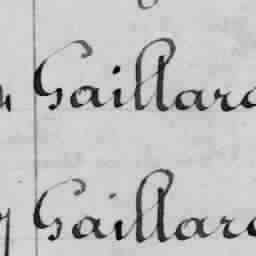 Gaillard
Gaillard